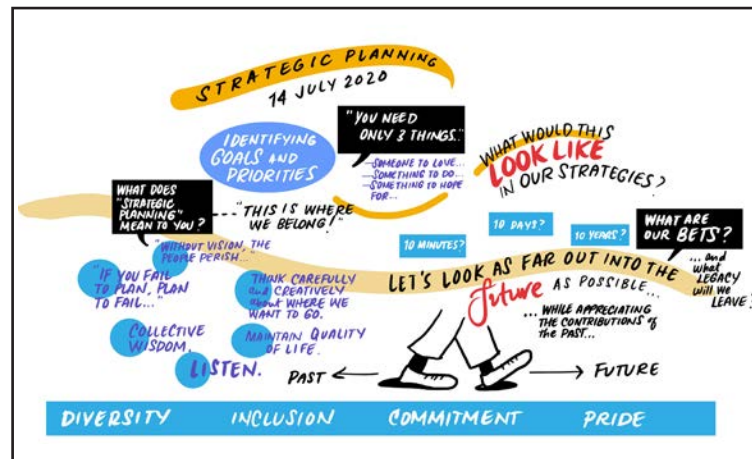 STRATEGIC PLANNING
14 JULY 2020
IDENTIFYING
GOALS AND
PRIORITIES
"YOU NEED
ONLY 3 THINGS."
—SOMEONE TO LOVE...
—SOMETHING TO DO...
—SOMETHING TO HOPE
FOR...
WHAT WOULD THIS
LOOK LIKE
IN OUR STRATEGIES?
WHAT DOES
"STRATEGIC
PLANNING"
MEAN TO YOU?
"THIS IS WHERE
WE BELONG!"
"WITHOUT VISION, THE
PEOPLE PERISH..."
"IF YOU FAIL
TO PLAN, PLAN
TO FAIL..."
THINK CAREFULLY
and CREATIVELY
about WHERE WE
WANT TO GO.
COLLECTIVE
WISDOM.
MAINTAIN QUALITY
OF LIFE.
LISTEN.
10 MINUTES?
10 DAYS?
10 YEARS?
WHAT ARE
OUR BETS?
...and
what
LEGACY
will we
LEAVE?
LET'S LOOK AS FAR OUT INTO THE
future AS POSSIBLE...
...WHILE APPRECIATING
THE CONTRIBUTIONS of
the PAST...
PAST
FUTURE
DIVERSITY
INCLUSION
COMMITMENT
PRIDE